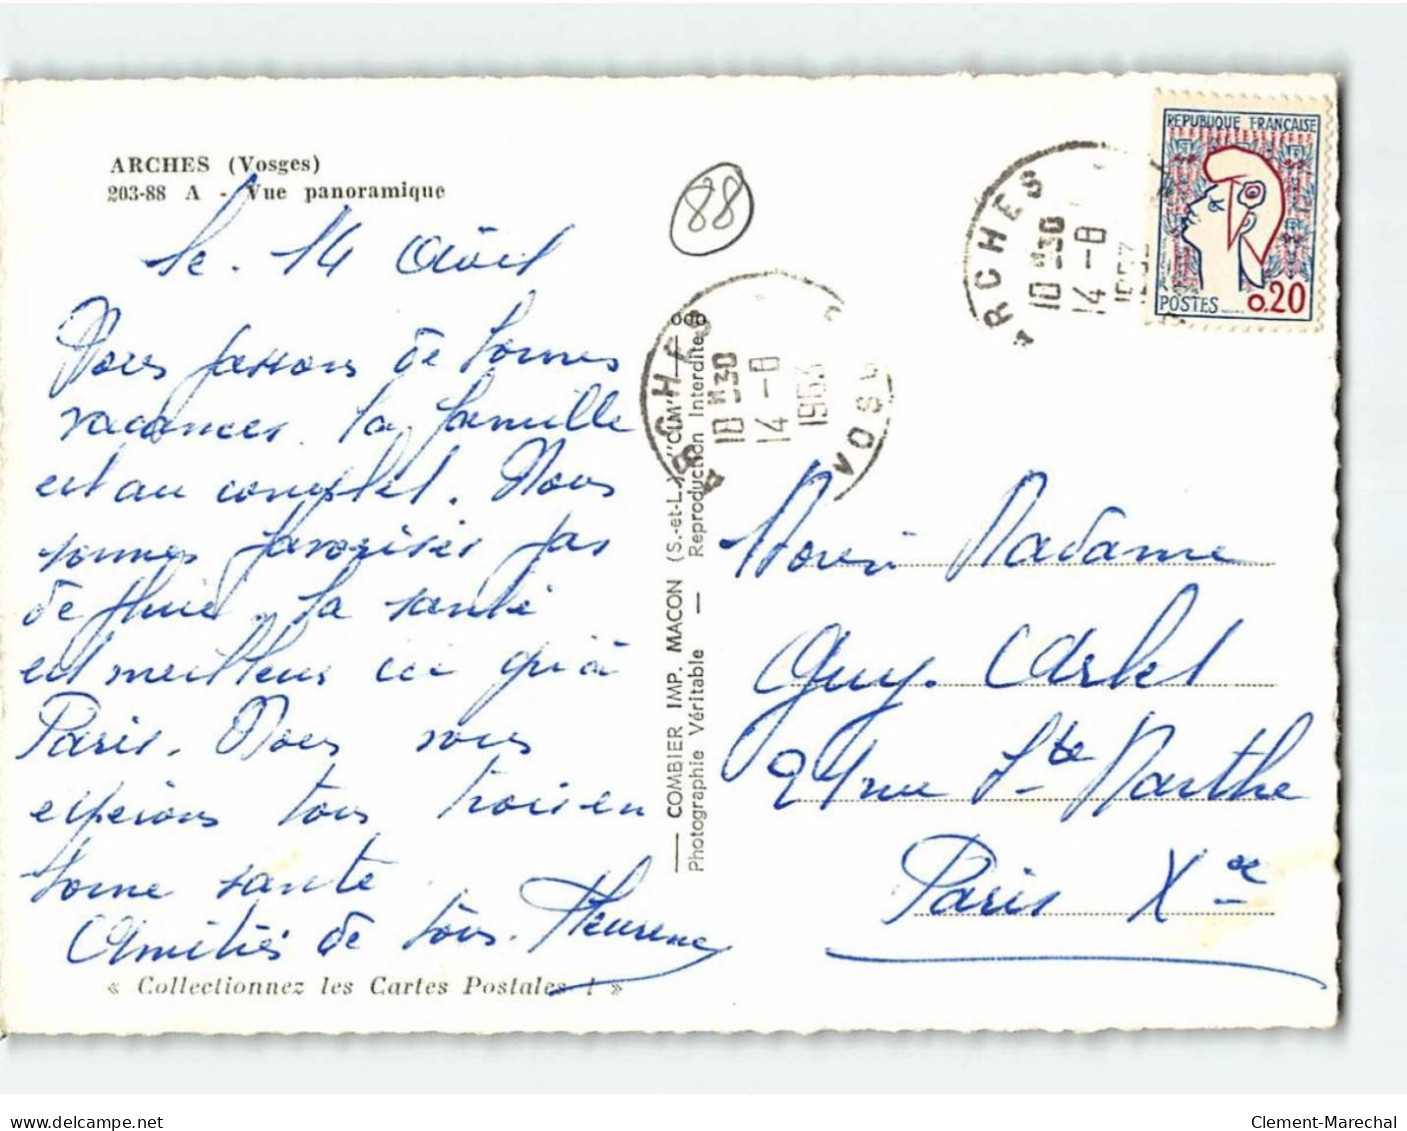 ARCHES (Vosges)
203-88 A - Vue panoramique
88
le. 14 Août
Nous passons de bonnes
vacances. la famille
est au complet. Nous
sommes favorisés pas
de pluie. la santé
est meilleur ici qu'à
Paris. Nous vous
espérons tous trois en
bonne santé
Amitiés de tous.
« Collectionnez les Cartes Postales ! »
COMBIER IMP. MACON (S.-et-L.) "CIM"
Photographie Véritable — Reproduction Interdite
ARCHES VOS
10 H30
14 -8
1963
ARCHES
10 H30
14 -8
REPUBLIQUE FRANÇAISE
POSTES 0,20
Madame
Guy.
24 rue Ste Marthe
Paris Xe
delcampe.net
Clement-Marechal